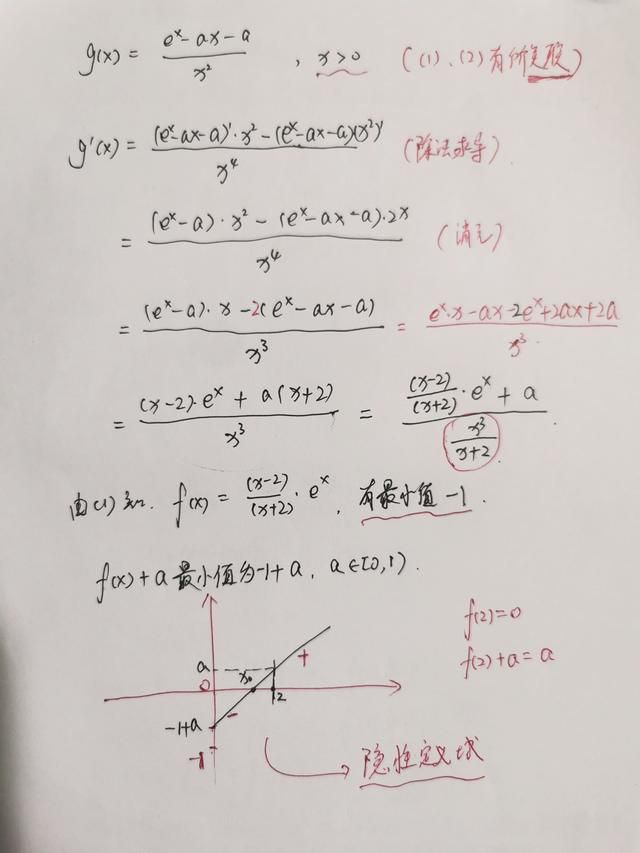 g(x) = (e^x - ax - a)/x² , x>0 ((1)、(2)有所关联)
g'(x) = ((e^x-ax-a)'·x² - (e^x-ax-a)(x²)')/x⁴ (除法求导)
= ((e^x-a)·x² - (e^x-ax-a)·2x)/x⁴ (消元)
= ((e^x-a)·x - 2(e^x-ax-a))/x³ = (e^x·x-ax-2e^x+2ax+2a)/x³
= ((x-2)·e^x + a(x+2))/x³ = ((x-2)/(x+2)·e^x + a)/(x³/(x+2))
由(1)知. f(x) = (x-2)/(x+2)·e^x , 有最小值-1.
f(x)+a 最小值为-1+a, a∈[0,1).
f(2)=0
f(2)+a=a
a
x₀
+
0
2
-1+a
-
-1
隐性定义域